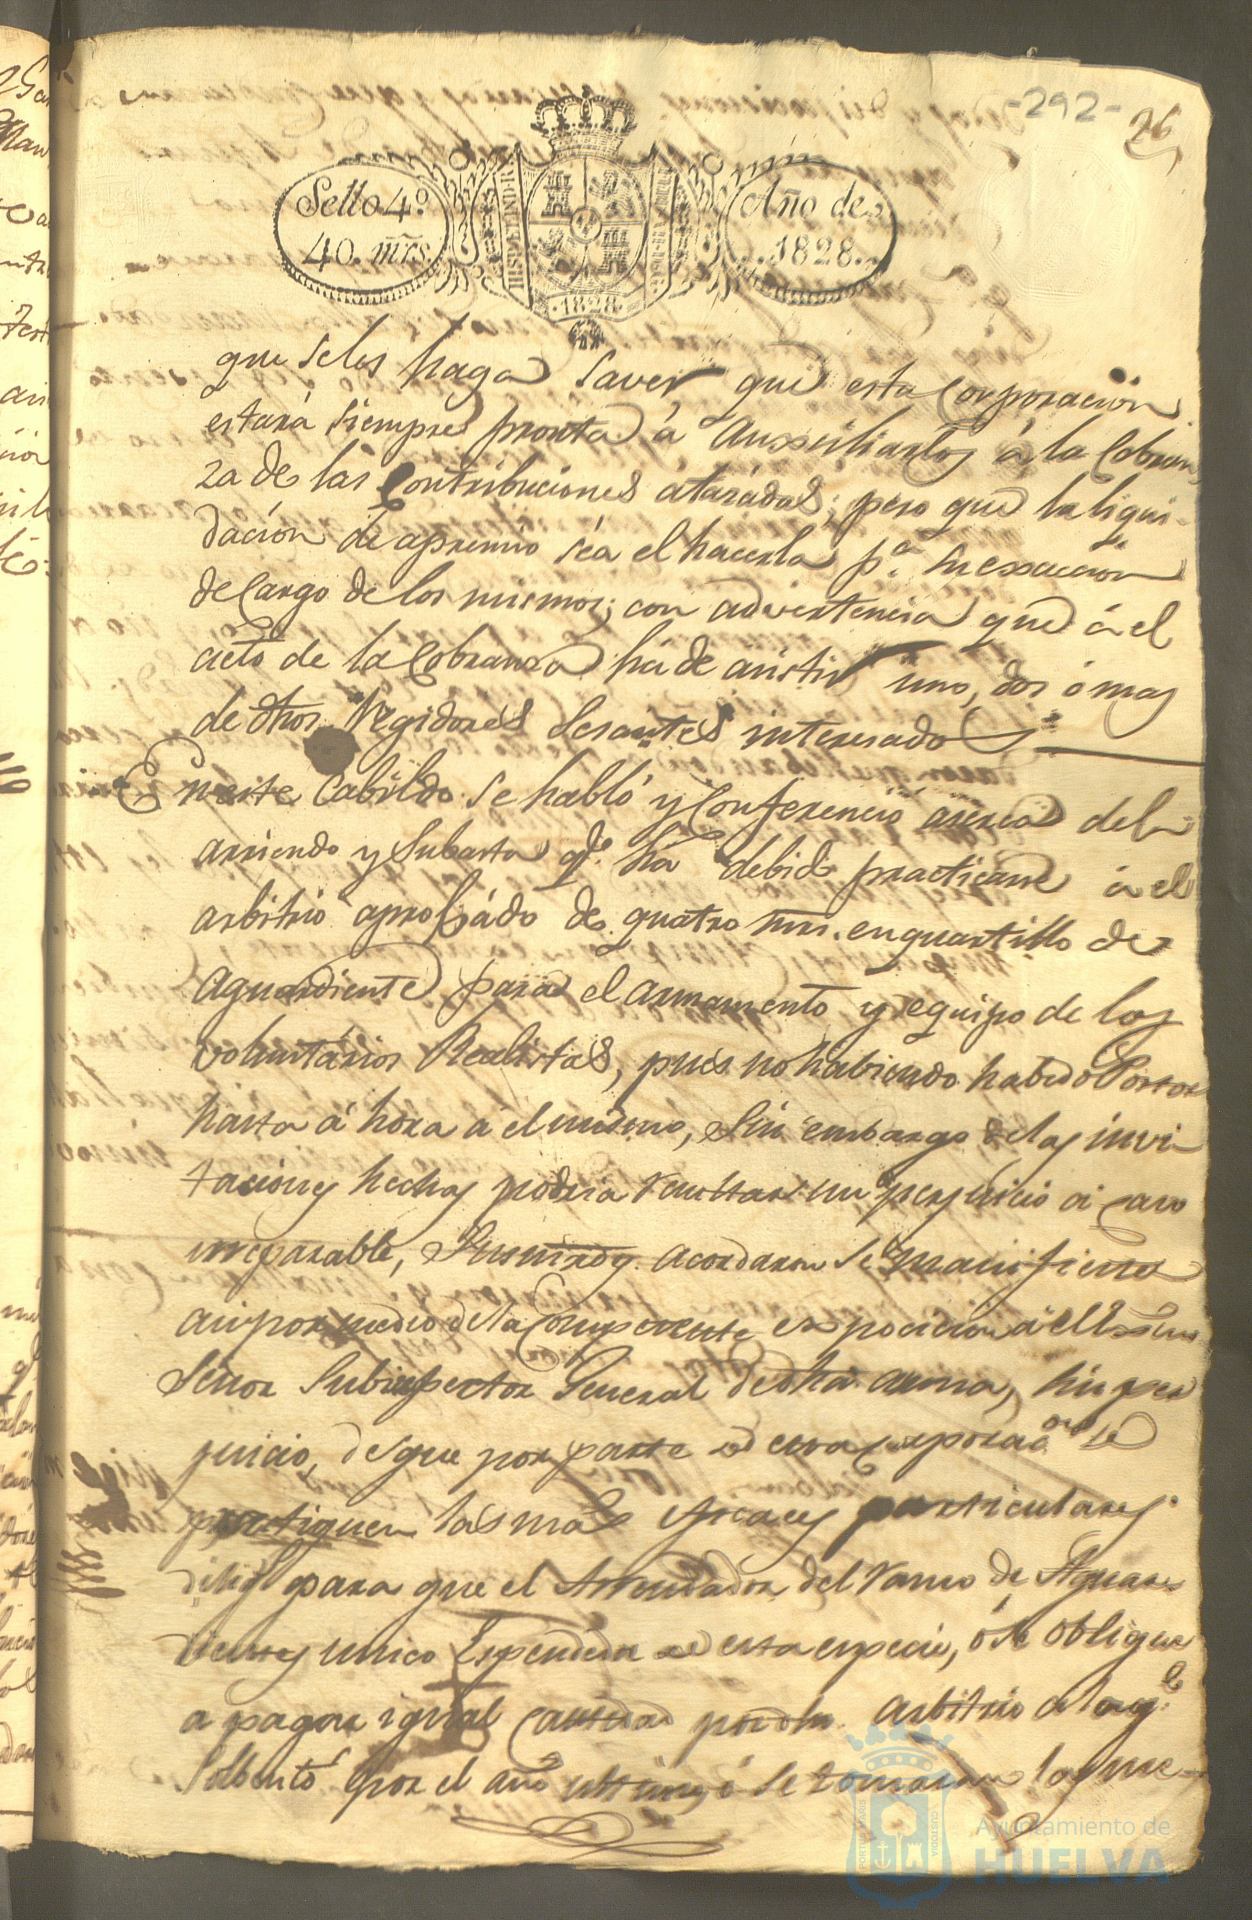 -292-
26
Sello 4º
40. mrs.
Año de
1828.
HISP. ET IND. R.
·1828·
que se les haga saver que esta Corporacion
estará siempre pronta á auxsiliarlos á la Cobran
za de las Contribuciones átrasadas; pero que la liqui-
dacion de apremio séa el hacerla pª. su exsaccion
de Cargo de los mismos; con advertencia que á el
acto de la Cobranza há de asistir uno, dos ó mas
de dhos. Regidores Sesantes interesados
En este Cabildo se habló y Conferenció acerca del
arriendo y Subasta qe. há debido practicarse á el
arbitrio aprobádo de quatro mrs. en quartillo de
aguardiente para el armamento y equipo de los
voluntários Realistas, pues no habiendo habido Postor
hasta á hora á el mismo, sin embargo de las invi
taciones hechas podria resultar un perjuicio
irreparable, Sus mrds. acordaron se manifieste
asi por medio de la Competente exposicion á el Exsmo
Señor Subinspector General de dha. arma, sin per
juicio, de que por parte de esta Corporacon. se
practiquen las mas eficaces particulares
dilig para que el Arrendador del Ramo de Aguar
dientes unico Espendedor de esta especie, ó se obligue
a pagar igual cantidad por dho. arbitrio a la qe.
Solbentó por el año ultimo, ó se tomarán las me-
Ayuntamiento de
HUELVA